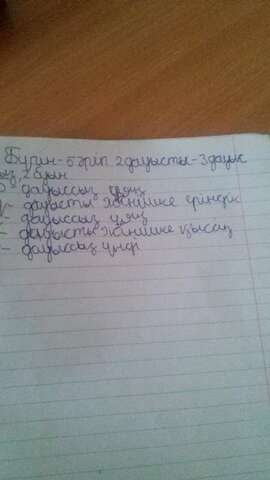 Бүгін - 5 әріп 2 дауысты - 3 дауыс
сыз, 2 буын
дауыссыз ұяң
ү - дауысты жіңішке еріндік
г - дауыссыз ұяң
і - дауысты жіңішке қысаң
н - дауыссыз үнді